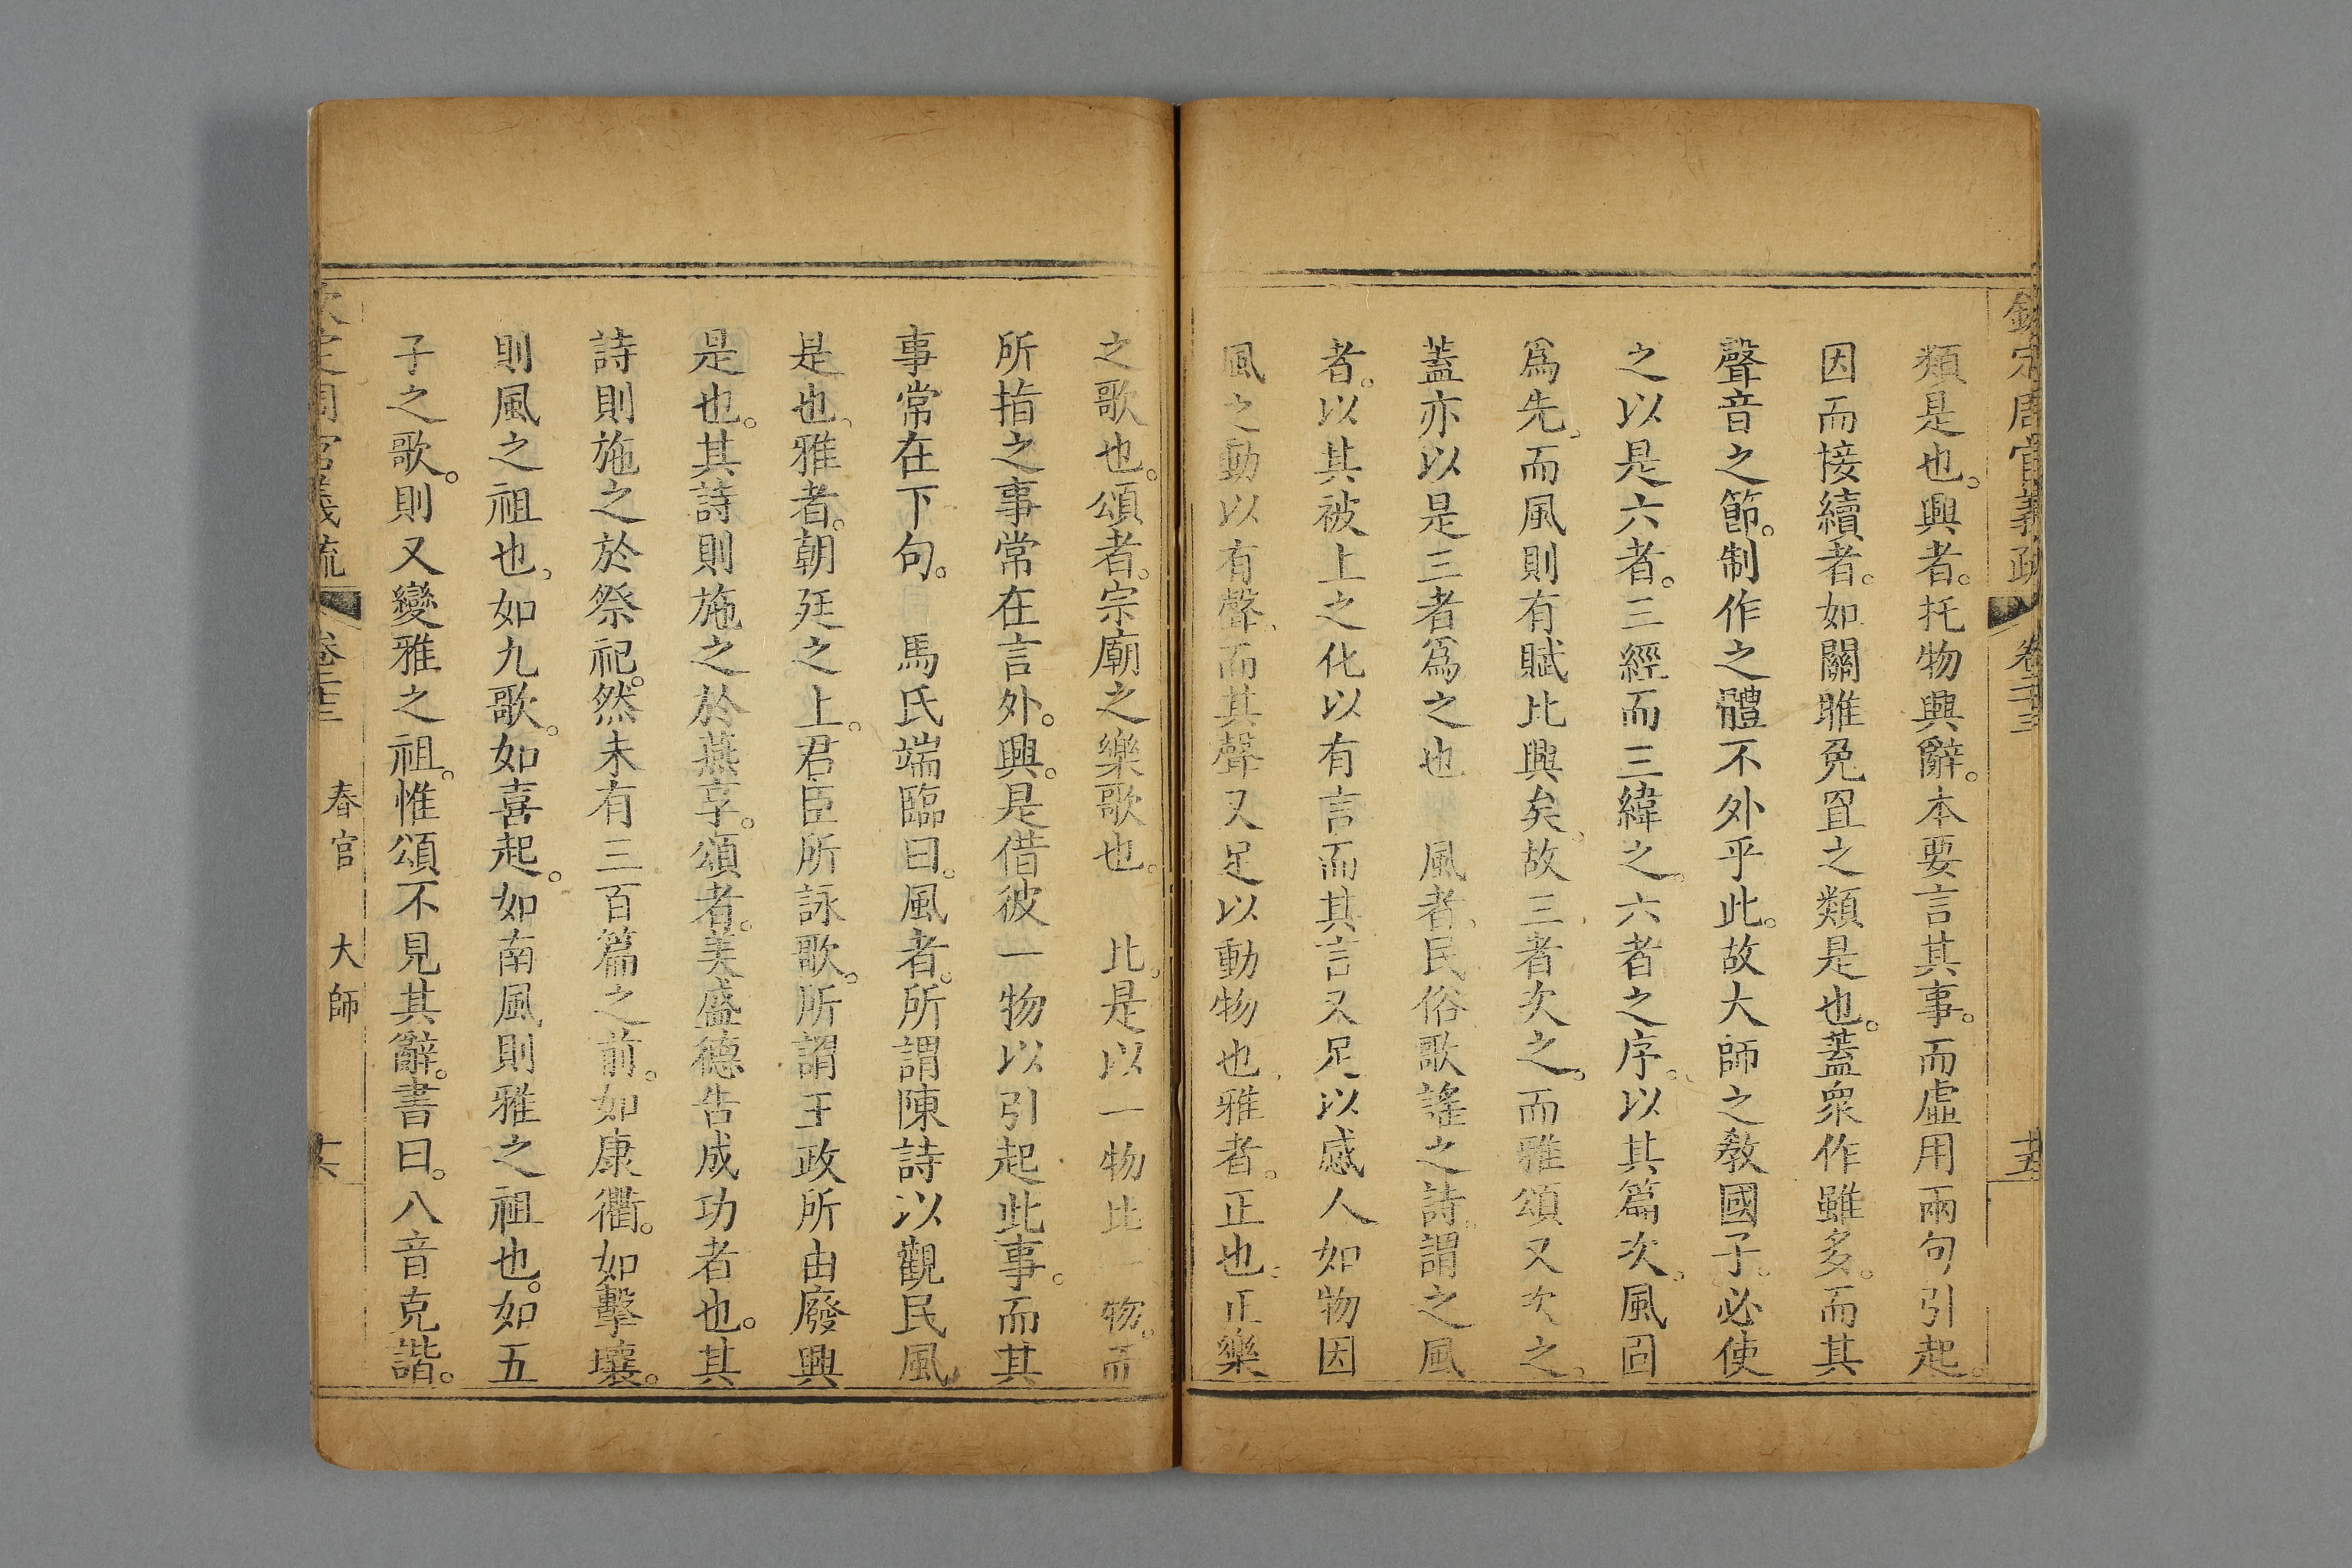 欽定周官義疏 卷二十三 十五
類是也。興者。托物興辭。本要言其事。而虛用兩句引起。
因而接續者。如關雎兔罝之類是也。蓋衆作雖多。而其
聲音之節。制作之體不外乎此。故大師之敎國子。必使
之以是六者。三經而三緯之。六者之序。以其篇次。風固
爲先。而風則有賦比興矣。故三者次之。而雅頌又次之。
蓋亦以是三者爲之也 風者。民俗歌謠之詩。謂之風
者。以其被上之化以有言而其言又足以感人如物因
風之動以有聲。而其聲又足以動物也。雅者。正也。正樂
之歌也。頌者。宗廟之樂歌也。 比。是以一物比一物。而
所指之事常在言外。興。是借彼一物以引起此事。而其
事常在下句。 馬氏端臨曰。風者。所謂陳詩以觀民風
是也。雅者。朝廷之上。君臣所詠歌。所謂王政所由廢興
是也。其詩則施之於燕享。頌者。美盛德告成功者也。其
詩則施之於祭祀。然未有三百篇之前。如康衢。如擊壤。
則風之祖也。如九歌。如喜起。如南風則雅之祖也。如五
子之歌。則又變雅之祖。惟頌不見其辭。書曰。八音克諧。
欽定周官義疏 卷二十三 春官 大師 十六